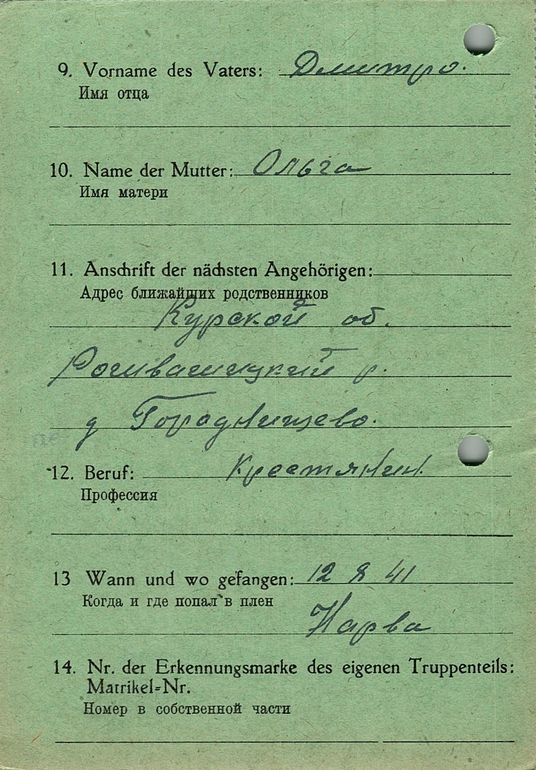 9. Vorname des Vaters: Дмитро.
Имя отца
10. Name der Mutter: Ольга
Имя матери
11. Anschrift der nächsten Angehörigen:
Адрес ближайших родственников
Курской об.
р.
д Городнищево.
12. Beruf: Крестянин
Профессия
13 Wann und wo gefangen: 12 8 41
Когда и где попал в плен
Нарва
14. Nr. der Erkennungsmarke des eigenen Truppenteils:
Matrikel-Nr.
Номер в собственной части